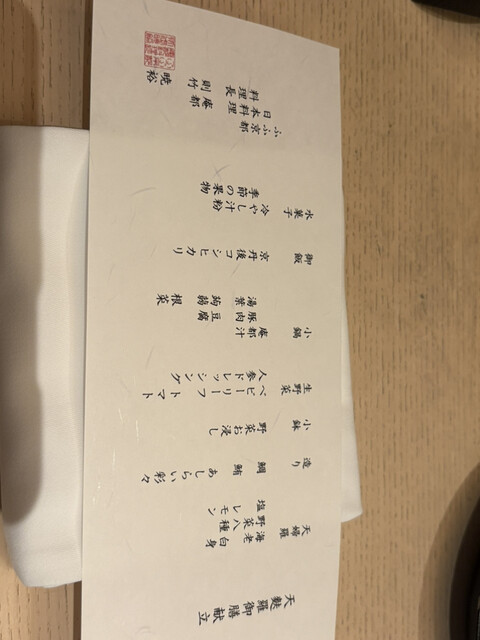 天麩羅御膳献立
天婦羅
海老 白身
野菜八種
塩 レモン
造り
鯛 鮪 あしらい彩々
小鉢
野菜お浸し
生野菜
ベビーリーフ トマト
人参ドレッシング
小鍋
庵都汁
豚肉 豆腐
湯葉 蒟蒻 根菜
御飯
京丹後コシヒカリ
水菓子
冷やし汁粉
季節の果物
ふふ京都
日本料理 庵都
料理長 則竹 暁裕